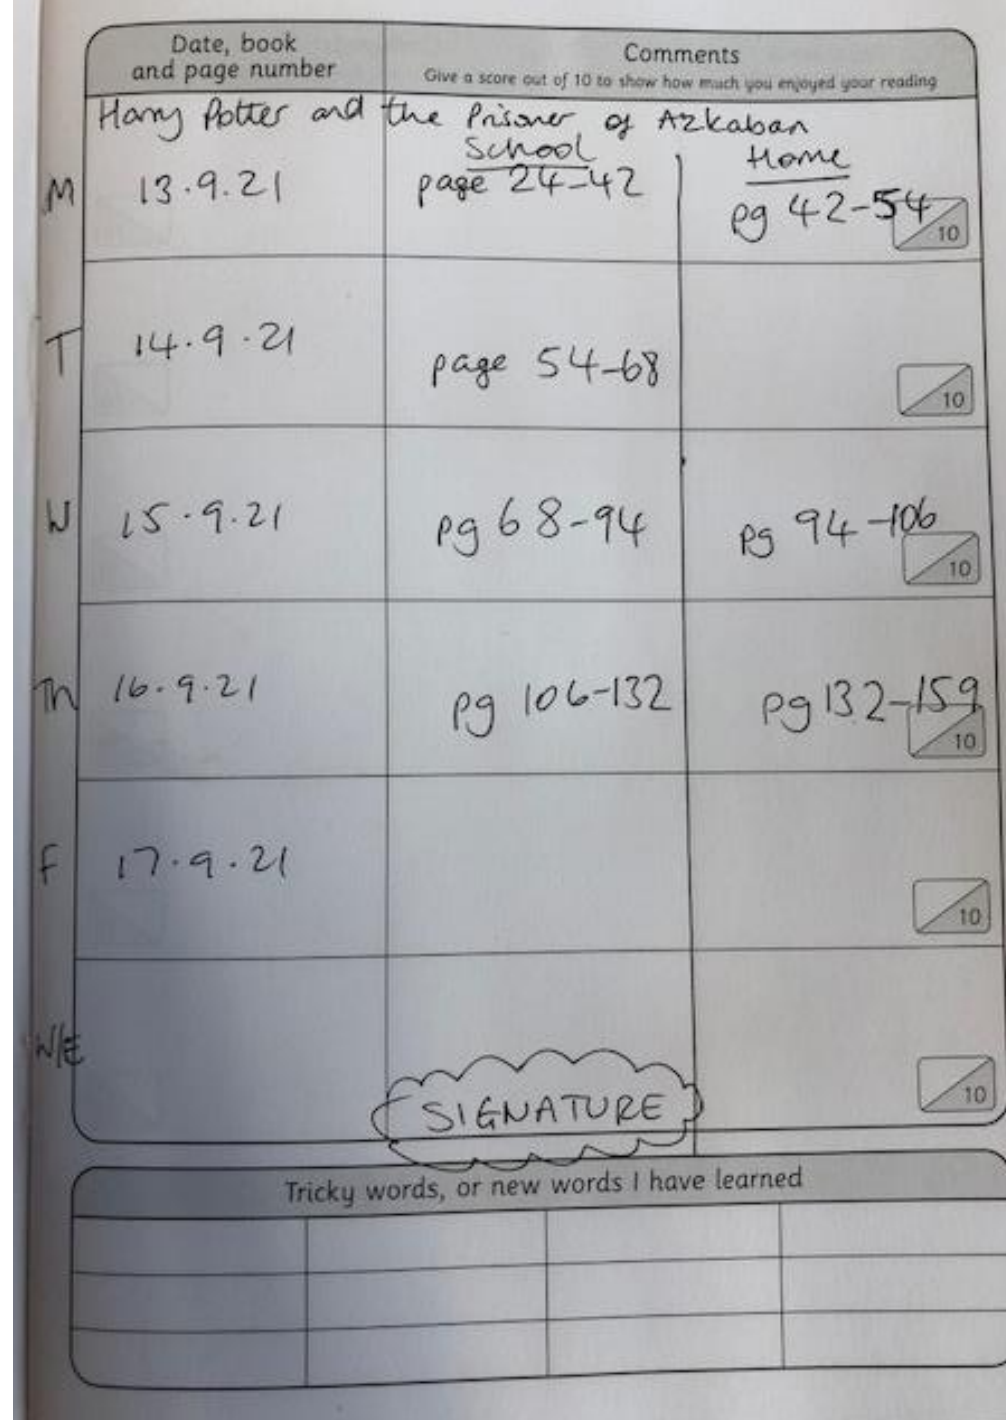 Date, book
and page number
Comments
Give a score out of 10 to show how much you enjoyed your reading
Harry Potter and the Prisoner of Azkaban
School
Home
M 13.9.21 page 24-42 pg 42-54 10
T 14.9.21 page 54-68 10
W 15.9.21 pg 68-94 pg 94-106 10
Th 16.9.21 pg 106-132 pg 132-159 10
F 17.9.21 10
W/E 10
SIGNATURE
Tricky words, or new words I have learned